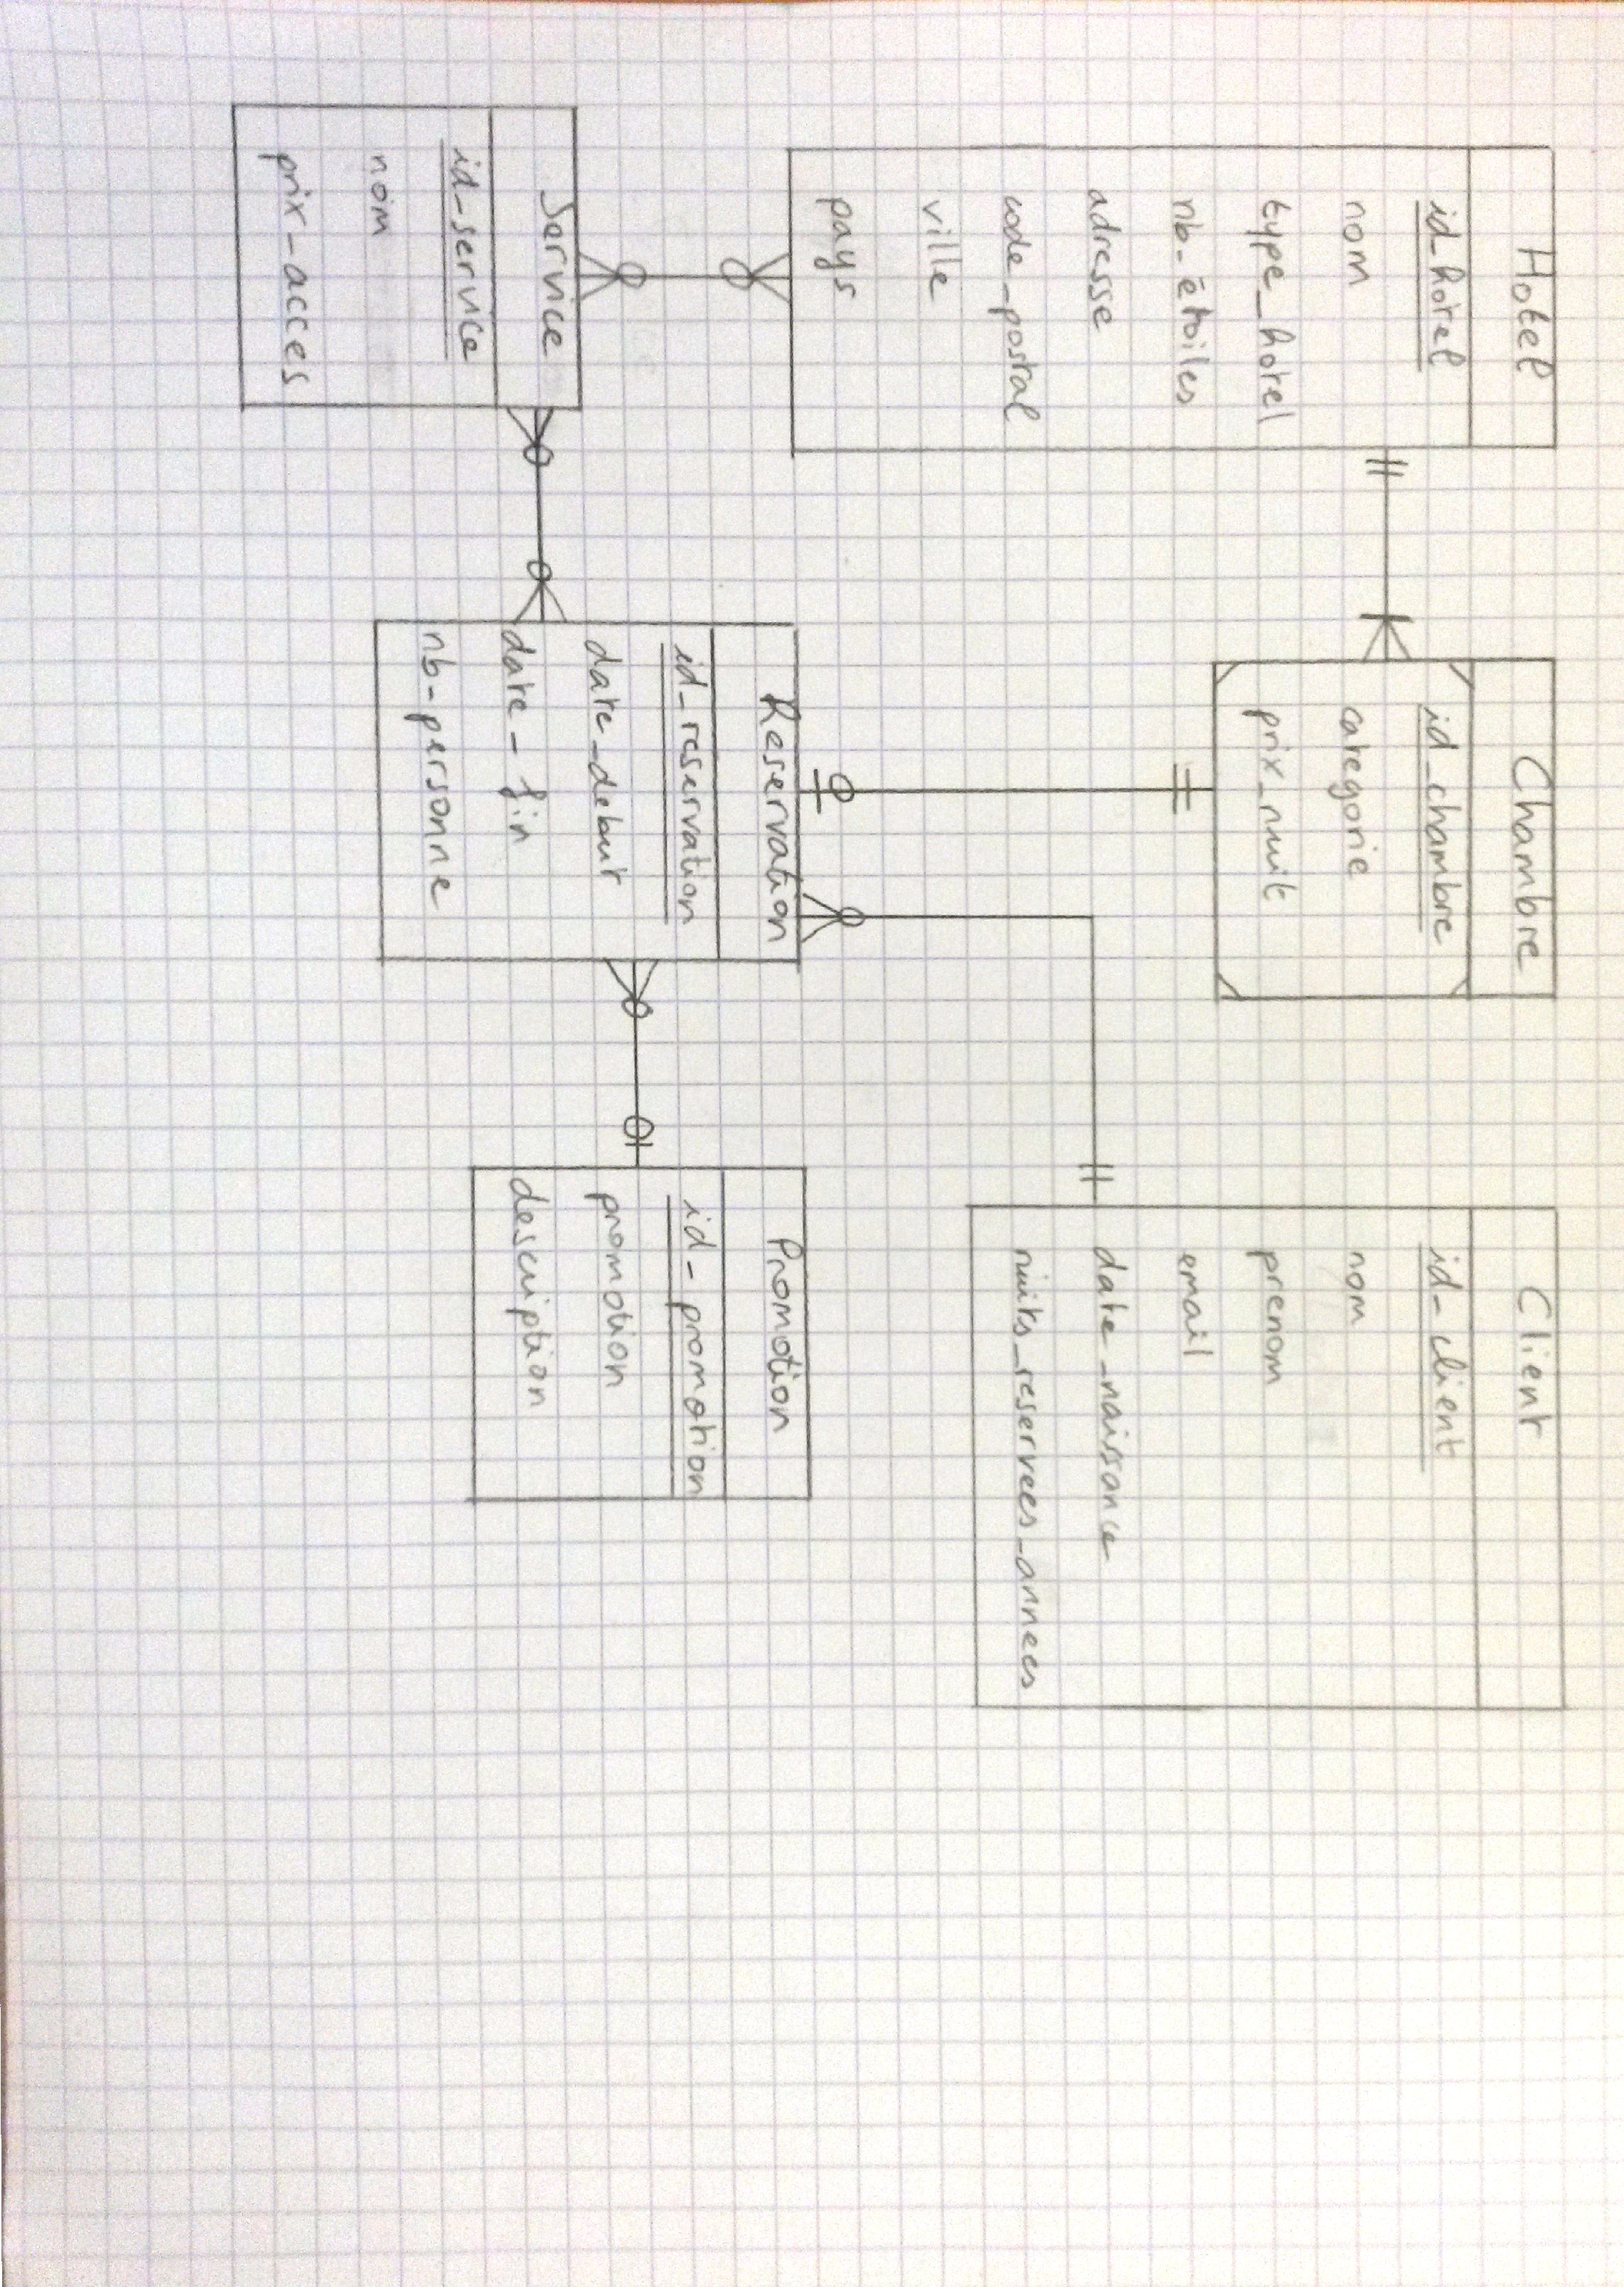 Hotel
id_hotel
nom
type_hotel
nb_étoiles
adresse
code_postal
ville
pays
Chambre
id_chambre
categorie
prix_nuit
Client
id_client
nom
prenom
email
date_naissance
nuits_reservees_annees
Service
id_service
nom
prix_acces
Reservation
id_reservation
date_debut
date_fin
nb_personne
Promotion
id_promotion
promotion
description